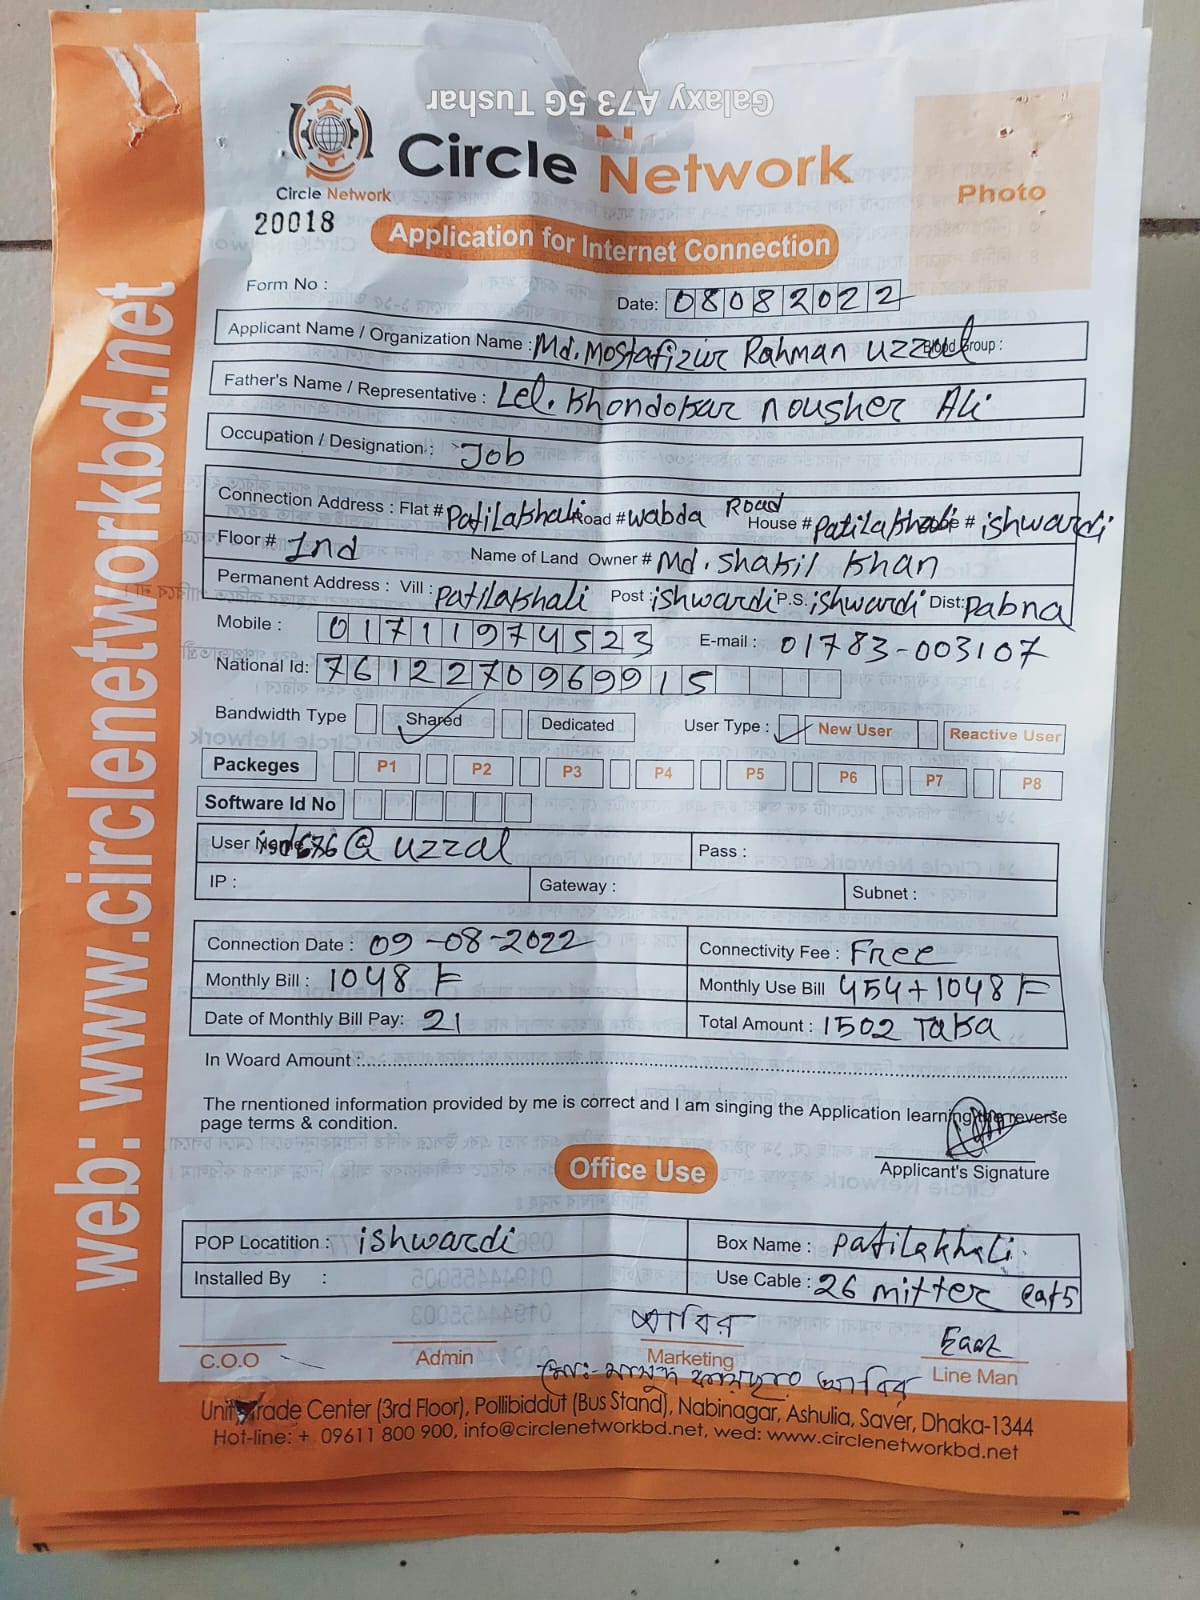 Galaxy A73 5G Tushar
Circle Network
Circle Network
Photo
20018
Application for Internet Connection
Form No :
Date: 08082022
Applicant Name / Organization Name : Md. Mostafizur Rahman uzzal Blood Group :
Father's Name / Representative : Lel. Khondokar nousher Ali
Occupation / Designation : Job
Connection Address : Flat # Patilakhali Road # wabda Road House # Patilakhali # ishwardi
Floor # 2nd Name of Land Owner # Md. Shakil Khan
Permanent Address : Vill : Patilakhali Post : ishwardi P.S. ishwardi Dist: Pabna
Mobile : 01711974523 E-mail : 01783-003107
National Id: 7612270969915
Bandwidth Type Shared Dedicated User Type : New User Reactive User
Packeges P1 P2 P3 P4 P5 P6 P7 P8
Software Id No
User Name @ uzzal Pass :
IP : Gateway : Subnet :
Connection Date : 09-08-2022 Connectivity Fee : Free
Monthly Bill : 1048 Monthly Use Bill 454+1048
Date of Monthly Bill Pay: 21 Total Amount : 1502 Taka
In Woard Amount :
The rnentioned information provided by me is correct and I am singing the Application learning the reverse
page terms & condition.
Applicant's Signature
Office Use
POP Locatition : ishwardi Box Name : Patilakhali
Installed By : Use Cable : 26 mitter cat5
আবির
C.O.O Admin Marketing Line Man
আবির
Trade Center (3rd Floor), Pollibiddut (Bus Stand), Nabinagar, Ashulia, Saver, Dhaka-1344
Hot-line: + 09611 800 900, info@circlenetworkbd.net, wed: www.circlenetworkbd.net
web: www.circlenetworkbd.net